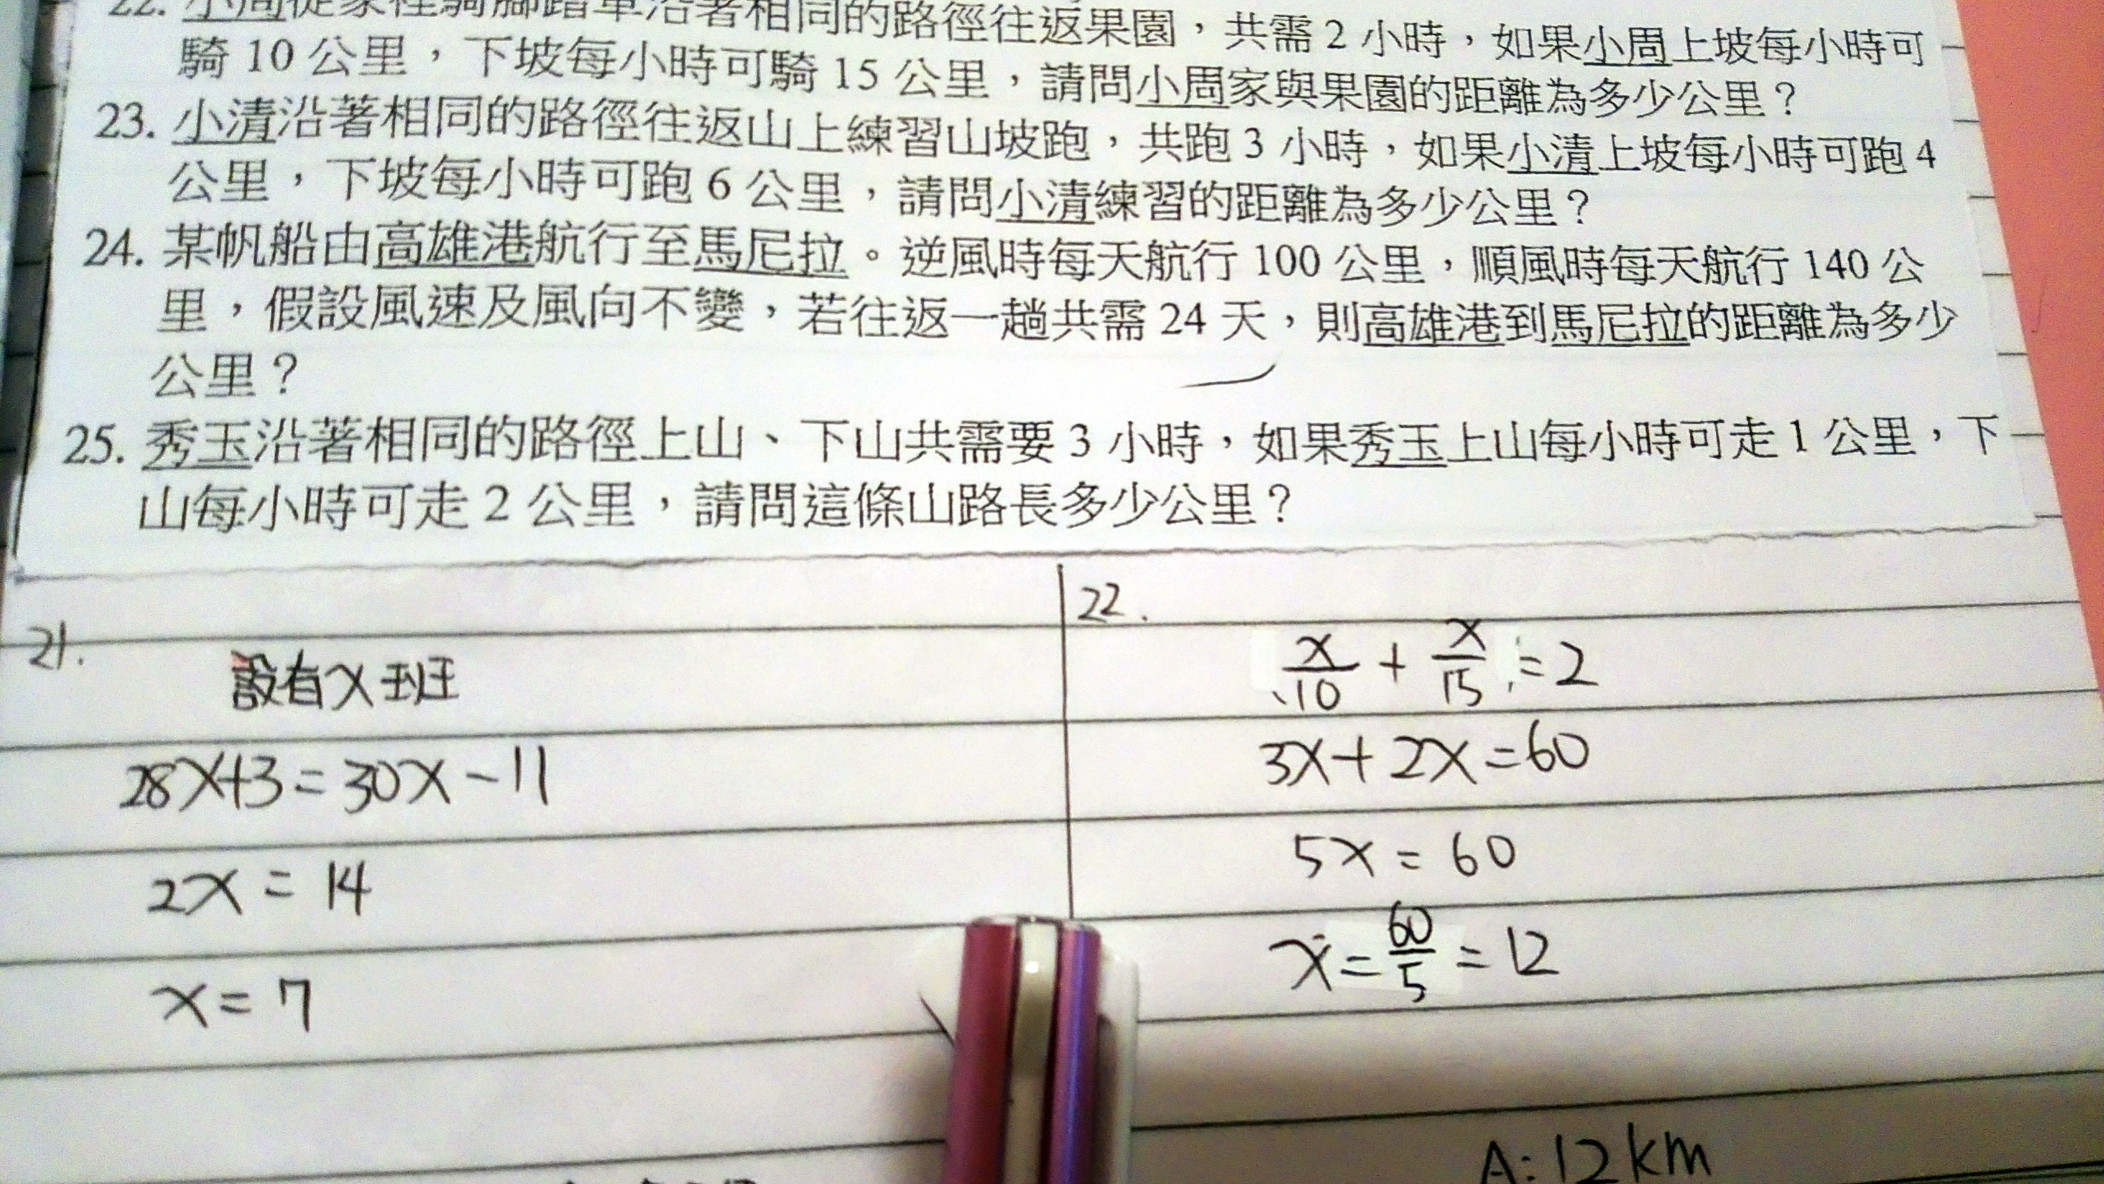 22. 小周從家裡騎腳踏車沿著相同的路徑往返果園，共需 2 小時，如果小周上坡每小時可
騎 10 公里，下坡每小時可騎 15 公里，請問小周家與果園的距離為多少公里？
23. 小清沿著相同的路徑往返山上練習山坡跑，共跑 3 小時，如果小清上坡每小時可跑 4
公里，下坡每小時可跑 6 公里，請問小清練習的距離為多少公里？
24. 某帆船由高雄港航行至馬尼拉。逆風時每天航行 100 公里，順風時每天航行 140 公
里，假設風速及風向不變，若往返一趟共需 24 天，則高雄港到馬尼拉的距離為多少
公里？
25. 秀玉沿著相同的路徑上山、下山共需要 3 小時，如果秀玉上山每小時可走 1 公里，下
山每小時可走 2 公里，請問這條山路長多少公里？
21.
設有x班
28x+3=30x-11
2x=14
x=7
22.
x/10 + x/15 =2
3x+2x=60
5x=60
x=60/5=12
A:12km